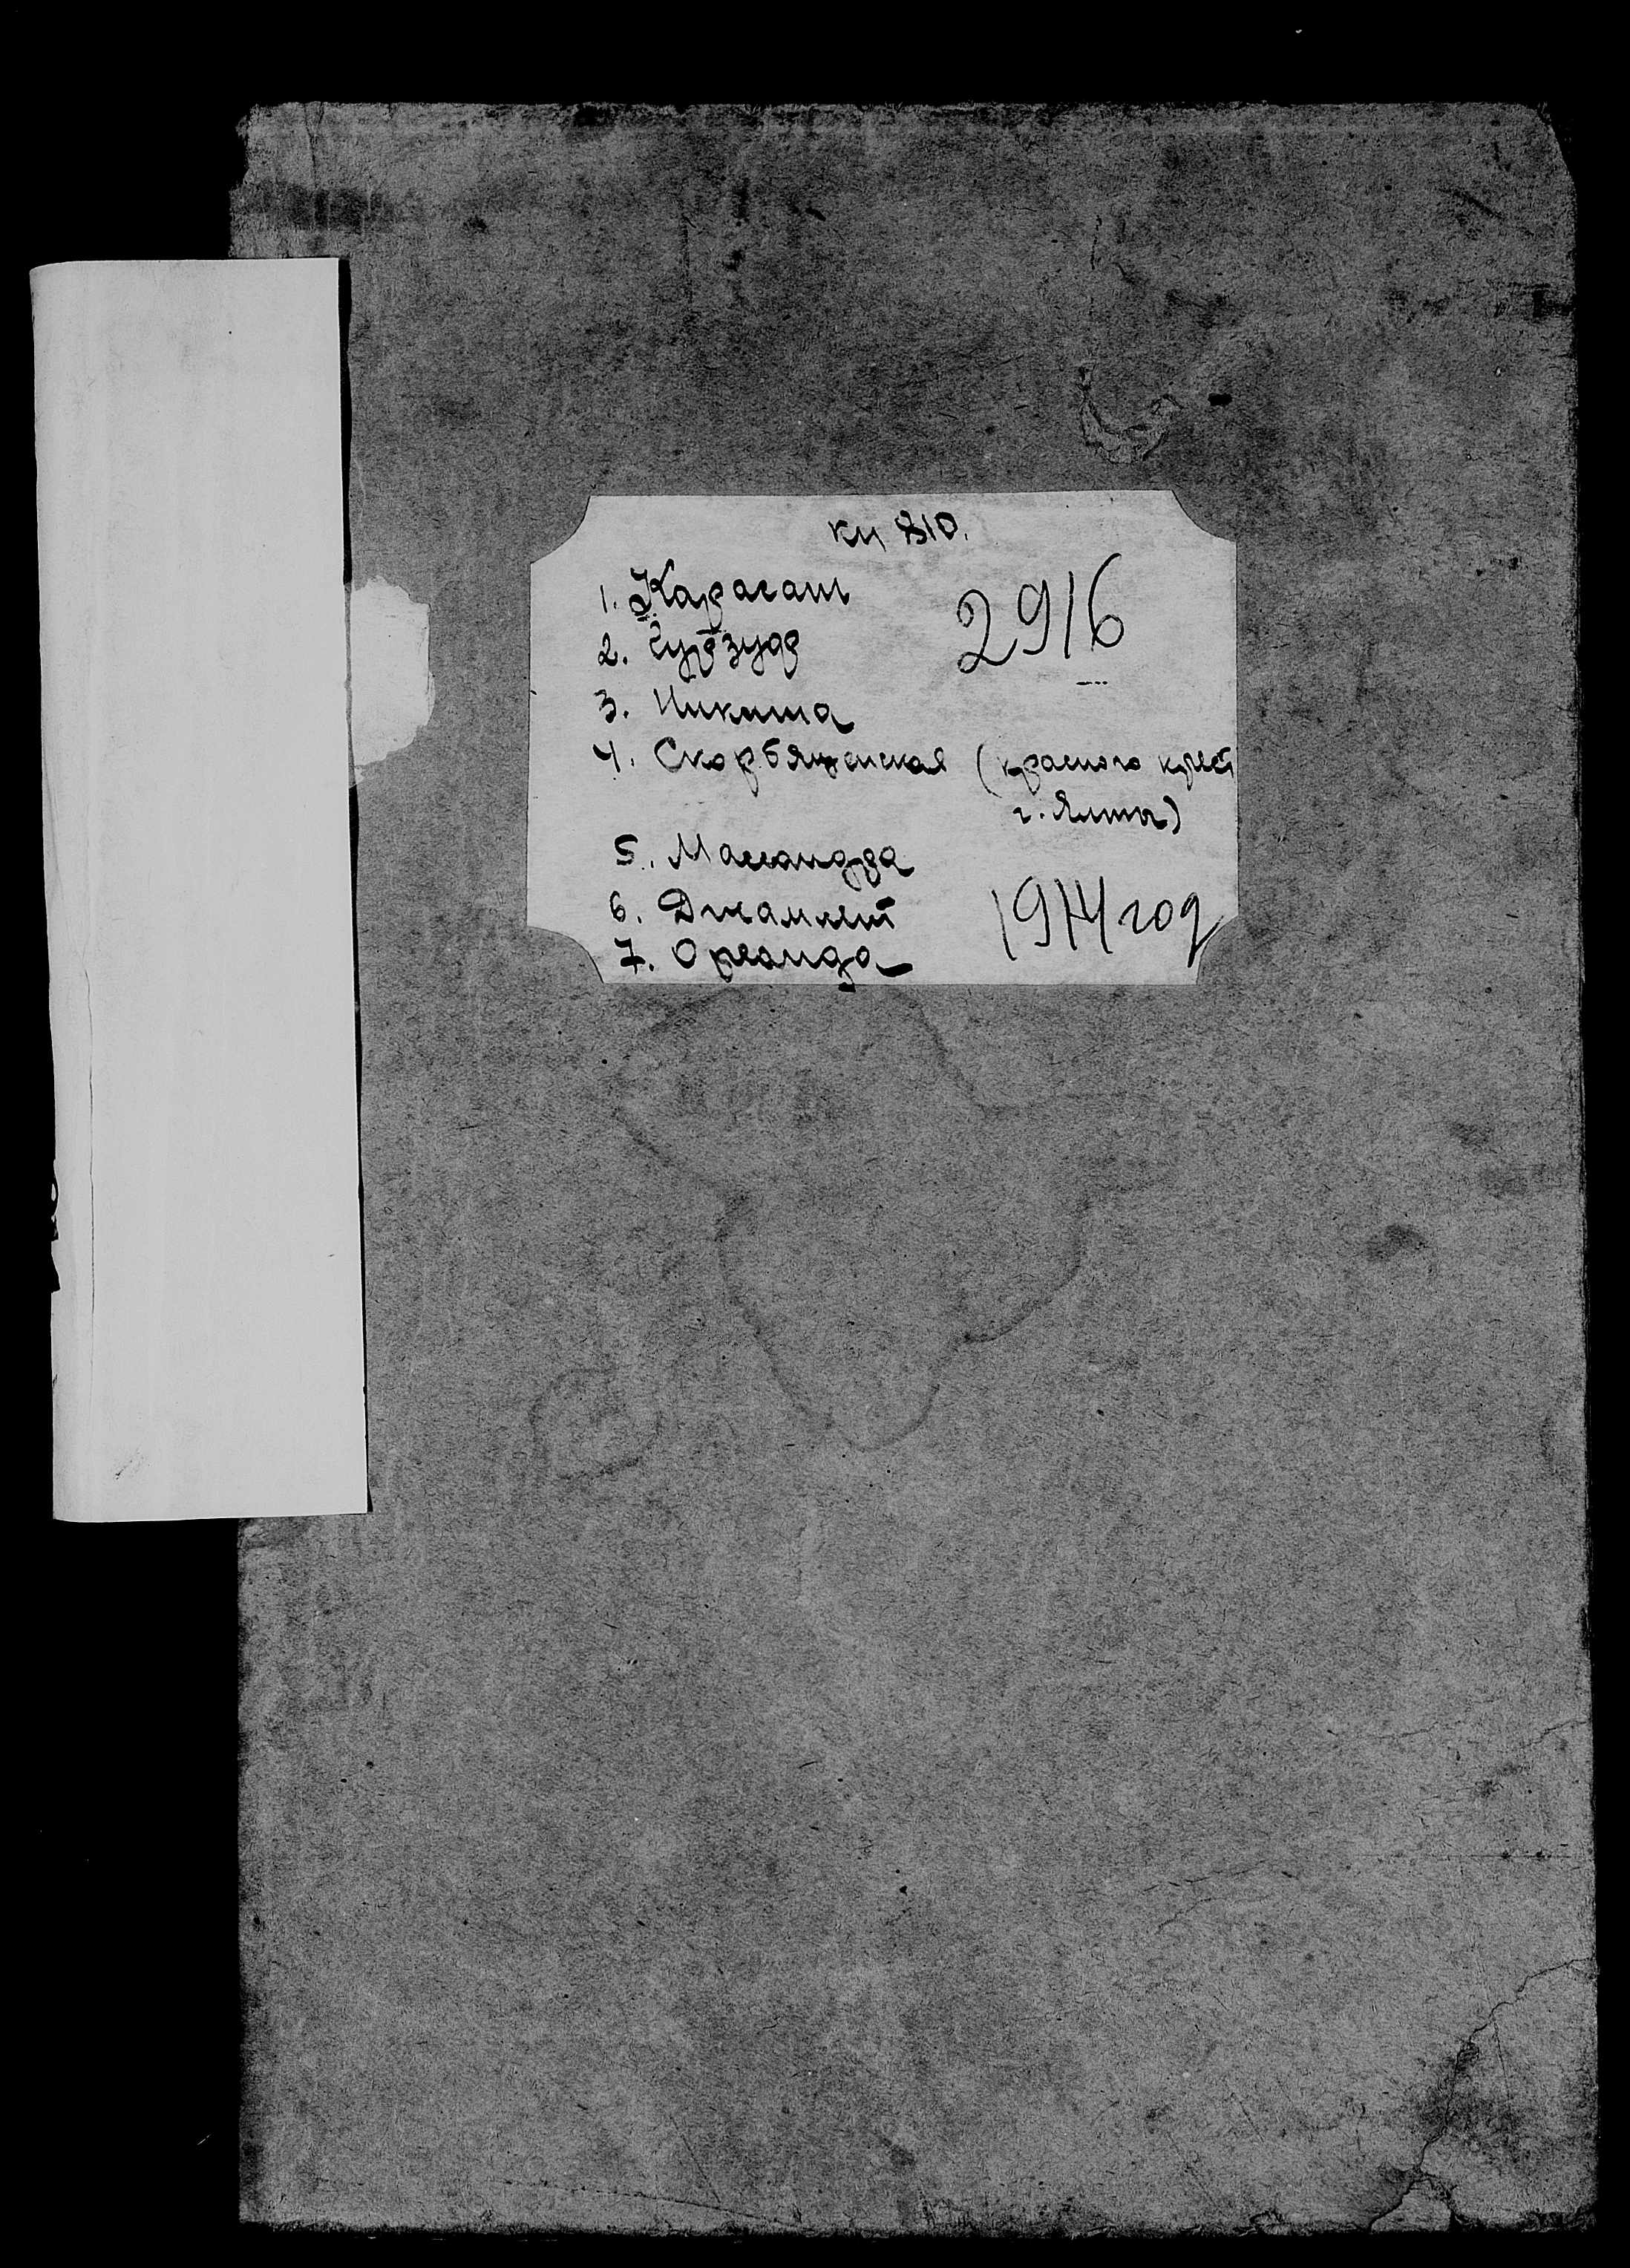 кн 810.
1. Карагат
2916
2. Гурзуф
3. Никита
4. Скорбященская (красного крест
г. Ялты)
5. Массандра
6. Джамлет
1914 год
7. Ореанда